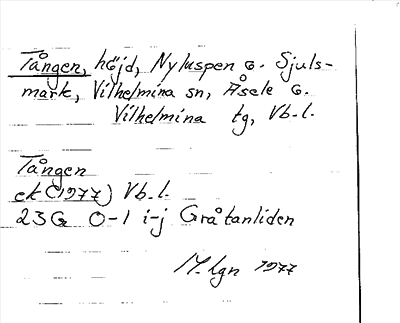 Tången, höjd, Nyluspen o. Sjuls-
mark, Vilhelmina sn, Åsele o.
Vilhelmina tg, Vb.l.
Tången
ek (1977) Vb.l.
23G 0-1 i-j Gråtanliden
M. Lgn 1977